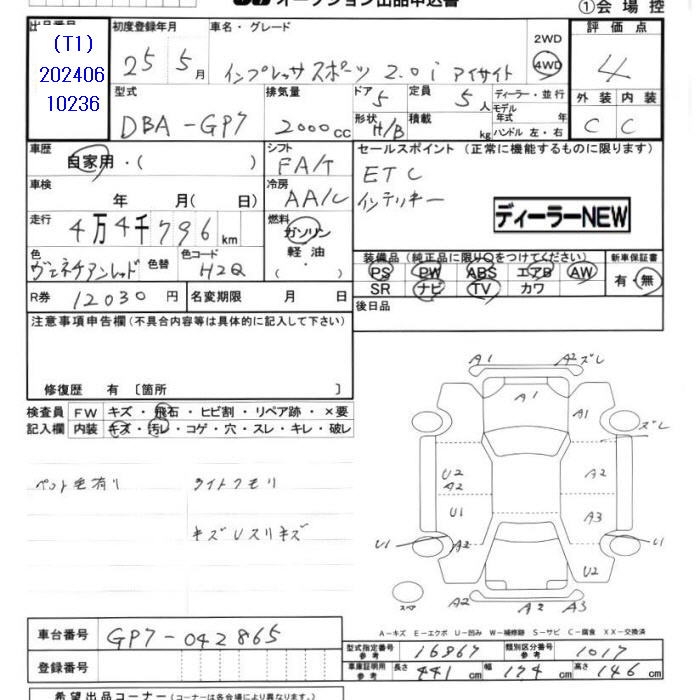 オークション出品申込書
①会場控
出品番号
(T1)
202406
10236
初度登録年月
25 5月
車名・グレード
インプレッサスポーツ 2.0i アイサイト
2WD
4WD
評価点
4
型式
DBA-GP7
排気量
2000cc
ドア
5
形状
H/B
定員
5人
積載
kg
ディーラー・並行
モデル年式 年
ハンドル 左・右
外装 内装
C C
車歴
自家用・( )
シフト
FA/T
セールスポイント (正常に機能するものに限ります)
ETC
インテリキー
ディーラーNEW
車検
年 月( 日)
冷房
AA/C
走行
4万4千796km
燃料
ガソリン
軽油・
( )
色
ヴェネチアンレッド
色替
色コード
H2Q
装備品 (純正品に限り○をつけてください)
PS PW ABS エアB AW
SR ナビ TV カワ
新車保証書
有・無
R券 12030円
名変期限 月 日
後日品
注意事項申告欄(不具合内容等は具体的に記入して下さい)
修復歴 有 〔箇所 〕
検査員 FW キズ・飛石・ヒビ割・リペア跡・×要
記入欄 内装 キズ・汚レ・コゲ・穴・スレ・キレ・破レ
ペット毛有り ライトクモリ
キズUスリキズ
A1 A2ズレ
A1
A1
ズレ
U2
A2
A2
U1
A3
U1
A2
U1
U2
スペア
A2
A2 A3
A-キズ E-エクボ U-凹み W-補修跡 S-サビ C-腐食 XX-交換済
車台番号 GP7-042865
登録番号
型式指定番号 参考 16867
類別区分番号 参考 1017
車庫証明用 参考 長さ 441cm 幅 174cm 高さ 146cm
希望出品コーナー(コーナーは各会場により異なります。)